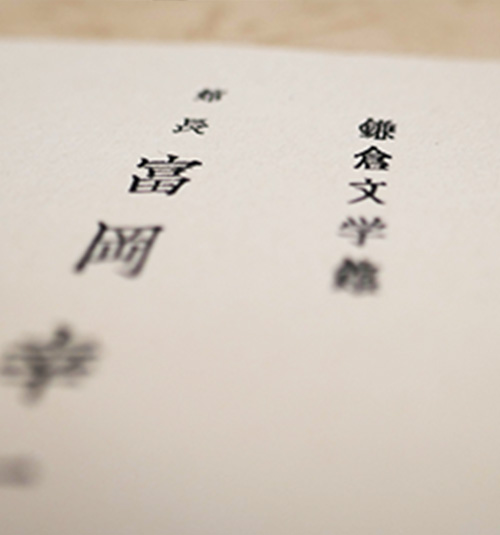 鎌倉文学館
館長
富岡幸